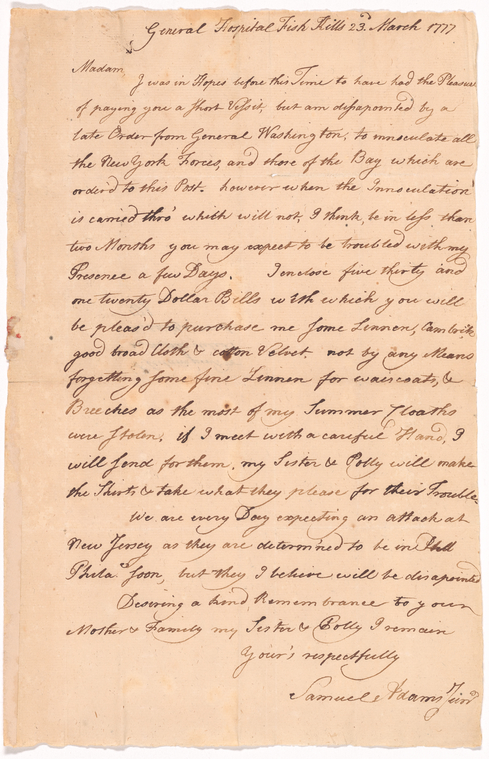 General Hospital Fish Kills 23d. March 1777
Madam
I was in Hopes before this Time to have had the Pleasure
of paying you a short Vissit, but am dissapointed by a
late Order from General Washington, to innoculate all
the New York Forces, and those of the Bay which are
order'd to this Post. however when the Innoculation
is carried thro' which will not, I think, be in less than
two Months you may expect to be troubled with my
Presence a few Days. I enclose five thirty and
one twenty Dollar Bills with which you will
be pleas'd to purchase me some Linnen, Cambrick
good broad Cloth & cotton Velvet not by any Means
forgetting some fine Linnen for waiscoats, &
Breeches as the most of my Summer Cloaths
were stolen. if I meet with a careful Hand, I
will send for them. my Sister & Polly will make
the Shirts & take what they please for their Trouble.
We are every Day expecting an attack at
New Jersey as they are determined to be in
Phila. soon, but they I believe will be disapointed
Desiring a kind Remembrance to your
Mother & Family my Sister & Polly I remain
Your's respectfully
Samuel Adams Junr